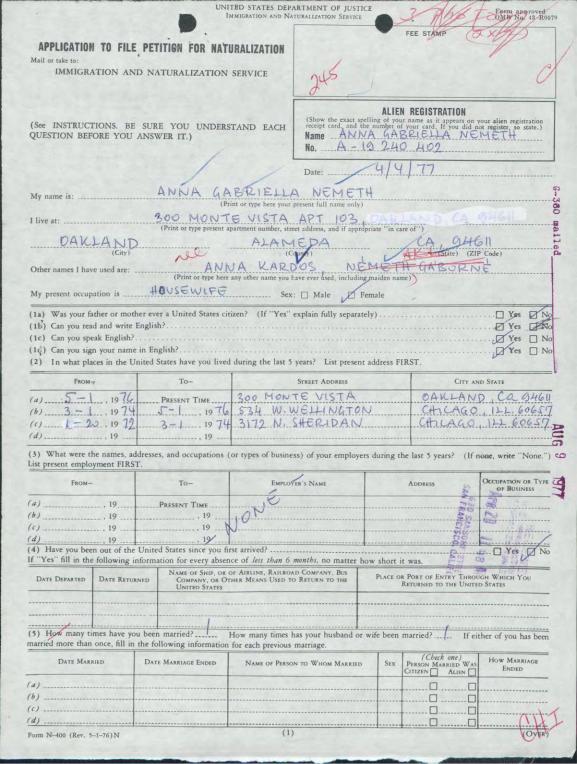 UNITED STATES DEPARTMENT OF JUSTICE
IMMIGRATION AND NATURALIZATION SERVICE
Form approved
OMB No. 43-R0079
FEE STAMP
245
APPLICATION TO FILE PETITION FOR NATURALIZATION
Mail or take to:
IMMIGRATION AND NATURALIZATION SERVICE
(See INSTRUCTIONS. BE SURE YOU UNDERSTAND EACH
QUESTION BEFORE YOU ANSWER IT.)
ALIEN REGISTRATION
(Show the exact spelling of your name as it appears on your alien registration
receipt card, and the number of your card. If you did not register, so state.)
Name ANNA GABRIELLA NEMETH
No. A-19 240 402
Date: 4/4/77
My name is: ANNA GABRIELLA NEMETH
(Print or type here your present full name only)
I live at: 300 MONTE VISTA APT 103, OAKLAND CA 94611
(Print or type present apartment number, street address, and if appropriate "in care of")
OAKLAND ALAMEDA CA, 94611
(City) (County) (State) (ZIP Code)
Other names I have used are: ANNA KARDOS, NEMETH GABORNE
(Print or type here any other name you have ever used, including maiden name)
My present occupation is HOUSEWIFE Sex: □ Male ☑ Female
G-360 mailed
(1a) Was your father or mother ever a United States citizen? (If "Yes" explain fully separately) □ Yes ☑ No
(1b) Can you read and write English? ☑ Yes □ No
(1c) Can you speak English? ☑ Yes □ No
(1d) Can you sign your name in English? ☑ Yes □ No
(2) In what places in the United States have you lived during the last 5 years? List present address FIRST.
FROM— TO— STREET ADDRESS CITY AND STATE
(a) 5-1, 1976 PRESENT TIME 300 MONTE VISTA OAKLAND, CA 94611
(b) 3-1, 1974 5-1, 1976 534 W. WELLINGTON CHICAGO, ILL. 60657
(c) 1-20, 1972 3-1, 1974 3172 N. SHERIDAN CHICAGO, ILL. 60657
(d) , 19 , 19
AUG 9 1977
(3) What were the names, addresses, and occupations (or types of business) of your employers during the last 5 years? (If none, write "None.")
List present employment FIRST.
FROM— TO— EMPLOYER'S NAME ADDRESS OCCUPATION OR TYPE OF BUSINESS
(a) , 19 PRESENT TIME
(b) , 19 , 19
(c) , 19 , 19
(d) , 19 , 19
NONE
630 SANSOME
SAN FRANCISCO, CALIF
(4) Have you been out of the United States since you first arrived? □ Yes ☑ No
If "Yes" fill in the following information for every absence of less than 6 months, no matter how short it was.
DATE DEPARTED DATE RETURNED NAME OF SHIP, OR OF AIRLINE, RAILROAD COMPANY, BUS COMPANY, OR OTHER MEANS USED TO RETURN TO THE UNITED STATES PLACE OR PORT OF ENTRY THROUGH WHICH YOU RETURNED TO THE UNITED STATES
(5) How many times have you been married? 1 How many times has your husband or wife been married? 1 If either of you has been
married more than once, fill in the following information for each previous marriage.
DATE MARRIED DATE MARRIAGE ENDED NAME OF PERSON TO WHOM MARRIED SEX (Check one) PERSON MARRIED WAS CITIZEN □ ALIEN □ HOW MARRIAGE ENDED
(a) □ □
(b) □ □
(c) □ □
(d) □ □
CHI
Form N-400 (Rev. 5-1-76)N (1) (OVER)